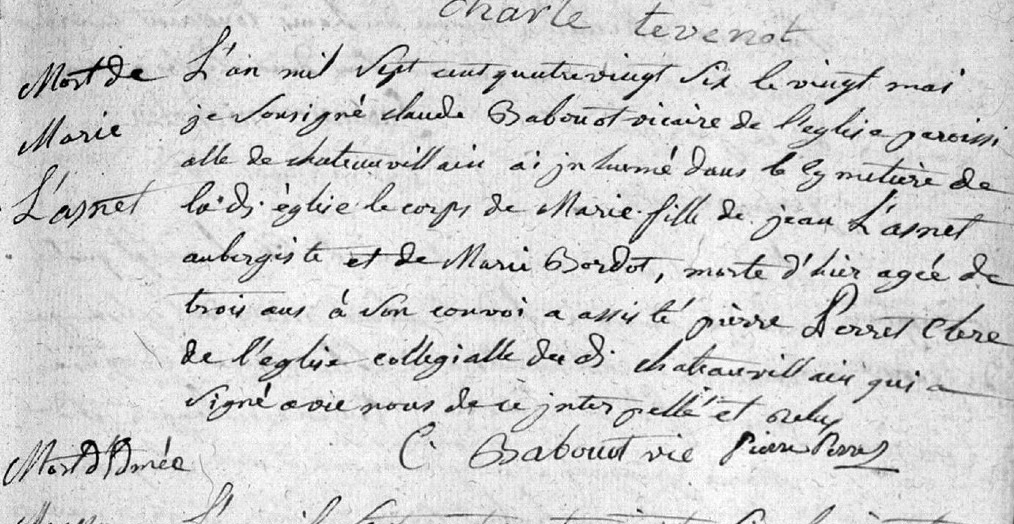 charle tevenot
Mort de
Marie
L'asnet
L'an mil sept cent quatrevingt six le vingt mai
je sousigné claude Babouot vicaire de l'eglise paroissi
alle de chateauvillain ai jnhumé dans le cymetiere de
la d. église le corps de Marie fille de jean L'asnet
aubergiste et de Marie Bordot, morte d'hier agée de
trois ans à son convoi a assisté pierre Perret Clerc
de l'eglise collegialle du d. chateauvillain qui a
signé avec nous de ce jnterpellé et
C. Babouot vic Pierre Perret
Mort d'Edmée